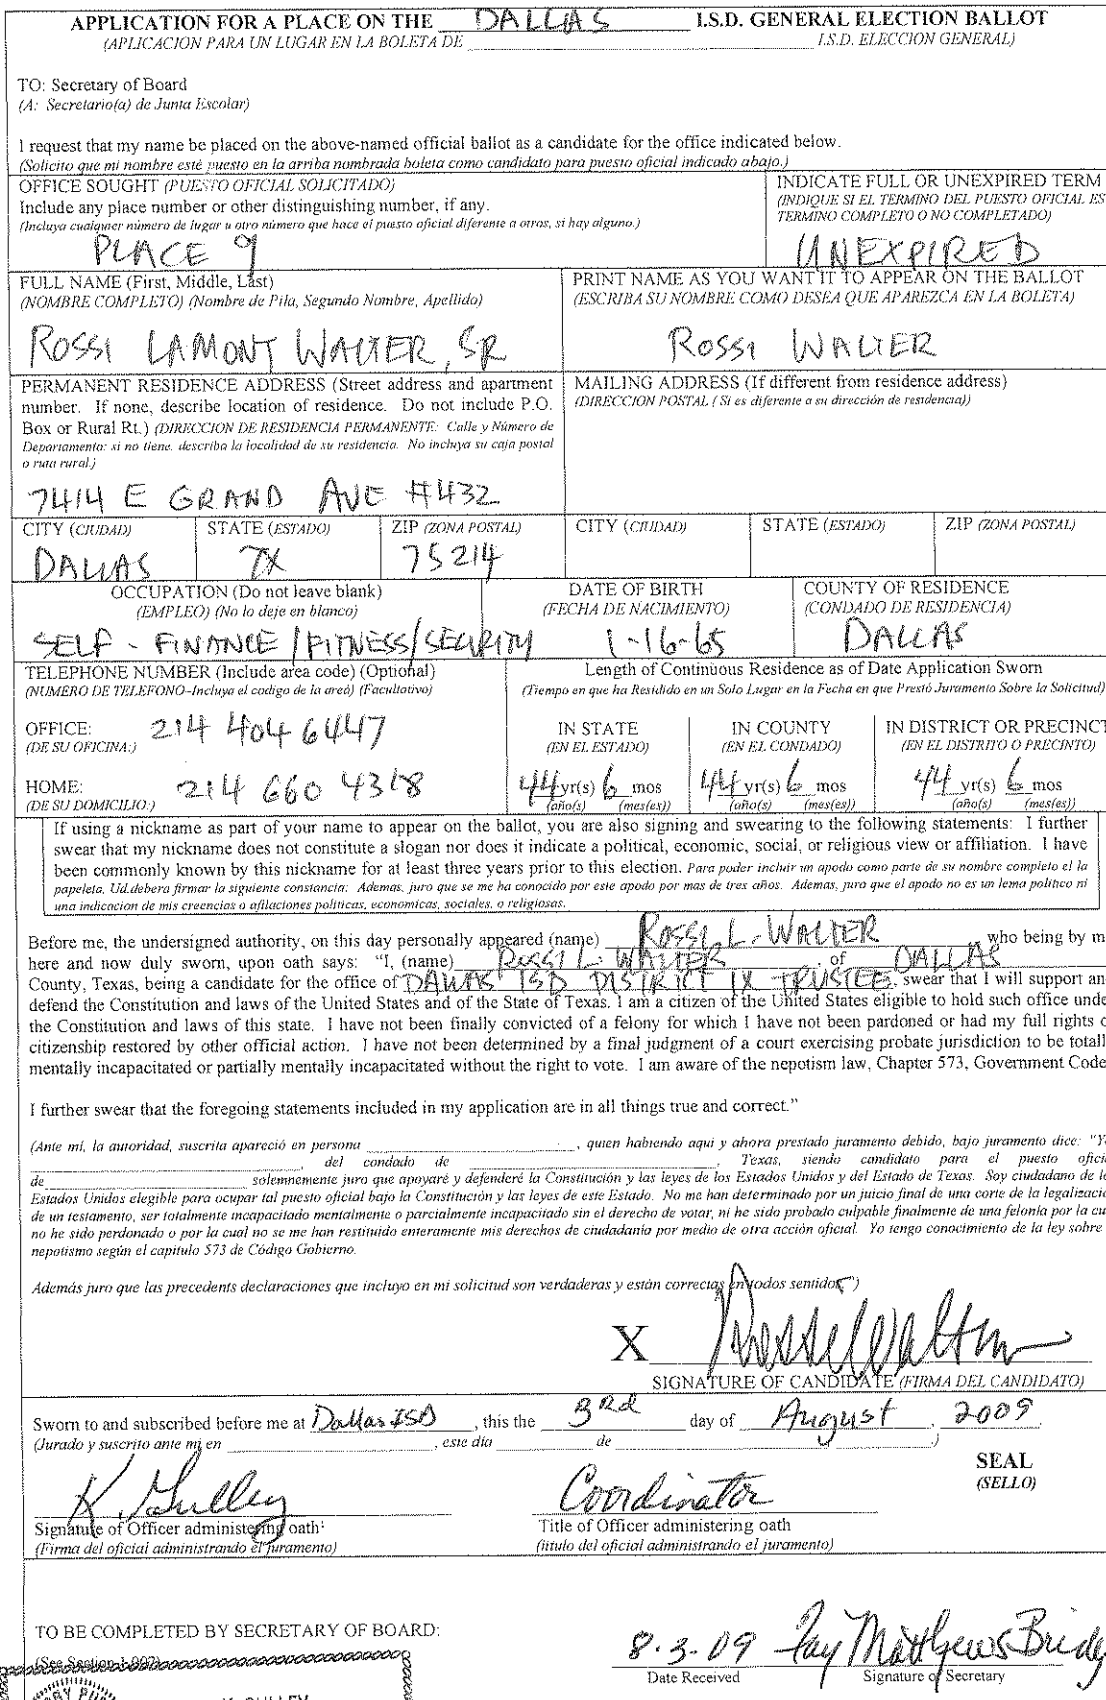 APPLICATION FOR A PLACE ON THE DALLAS I.S.D. GENERAL ELECTION BALLOT
(APLICACION PARA UN LUGAR EN LA BOLETA DE I.S.D. ELECCION GENERAL)
TO: Secretary of Board
(A: Secretario(a) de Junta Escolar)
I request that my name be placed on the above-named official ballot as a candidate for the office indicated below.
(Solicito que mi nombre esté puesto en la arriba nombrada boleta como candidato para puesto oficial indicado abajo.)
OFFICE SOUGHT (PUESTO OFICIAL SOLICITADO)
Include any place number or other distinguishing number, if any.
(Incluya cualquier número de lugar u otro número que hace el puesto oficial diferente a otros, si hay alguno.)
PLACE 9
INDICATE FULL OR UNEXPIRED TERM
(INDIQUE SI EL TERMINO DEL PUESTO OFICIAL ES
TERMINO COMPLETO O NO COMPLETADO)
UNEXPIRED
FULL NAME (First, Middle, Last)
(NOMBRE COMPLETO) (Nombre de Pila, Segundo Nombre, Apellido)
ROSSI LAMONT WALTER, SR
PRINT NAME AS YOU WANT IT TO APPEAR ON THE BALLOT
(ESCRIBA SU NOMBRE COMO DESEA QUE APAREZCA EN LA BOLETA)
ROSSI WALTER
PERMANENT RESIDENCE ADDRESS (Street address and apartment
number. If none, describe location of residence. Do not include P.O.
Box or Rural Rt.) (DIRECCION DE RESIDENCIA PERMANENTE: Calle y Número de
Departamento: si no tiene, describa la localidad de su residencia. No incluya su caja postal
o ruta rural.)
7414 E GRAND AVE #432
MAILING ADDRESS (If different from residence address)
(DIRECCION POSTAL (Si es diferente a su dirección de residencia))
CITY (CIUDAD) STATE (ESTADO) ZIP (ZONA POSTAL) CITY (CIUDAD) STATE (ESTADO) ZIP (ZONA POSTAL)
DALLAS TX 75214
OCCUPATION (Do not leave blank) DATE OF BIRTH COUNTY OF RESIDENCE
(EMPLEO) (No lo deje en blanco) (FECHA DE NACIMIENTO) (CONDADO DE RESIDENCIA)
SELF - FINANCE/FITNESS/SECURITY 1-16-65 DALLAS
TELEPHONE NUMBER (Include area code) (Optional)
(NUMERO DE TELEFONO-Incluya el codigo de la areá) (Facultativo)
OFFICE: 214 404 6447
(DE SU OFICINA:)
HOME: 214 660 4318
(DE SU DOMICILIO:)
Length of Continuous Residence as of Date Application Sworn
(Tiempo en que ha Residido en un Solo Lugar en la Fecha en que Prestó Juramento Sobre la Solicitud)
IN STATE IN COUNTY IN DISTRICT OR PRECINCT
(EN EL ESTADO) (EN EL CONDADO) (EN EL DISTRITO O PRECINTO)
44 yr(s) 6 mos 44 yr(s) 6 mos 44 yr(s) 6 mos
(año(s) (mes(es)) (año(s) (mes(es)) (año(s) (mes(es))
If using a nickname as part of your name to appear on the ballot, you are also signing and swearing to the following statements: I further
swear that my nickname does not constitute a slogan nor does it indicate a political, economic, social, or religious view or affiliation. I have
been commonly known by this nickname for at least three years prior to this election. Para poder incluir un apodo como parte de su nombre completo el la
papeleta, Ud.debera firmar la siguiente constancia: Ademas, juro que se me ha conocido por este apodo por mas de tres años. Ademas, juro que el apodo no es un lema politico ni
una indicacion de mis creencias o afilaciones politicas, economicas, sociales, o religiosas.
Before me, the undersigned authority, on this day personally appeared (name) ROSSI L. WALTER who being by m
here and now duly sworn, upon oath says: "I, (name) ROSSI L. WALTER, of DALLAS
County, Texas, being a candidate for the office of DALLAS ISD DISTRICT IX TRUSTEE, swear that I will support an
defend the Constitution and laws of the United States and of the State of Texas. I am a citizen of the United States eligible to hold such office unde
the Constitution and laws of this state. I have not been finally convicted of a felony for which I have not been pardoned or had my full rights o
citizenship restored by other official action. I have not been determined by a final judgment of a court exercising probate jurisdiction to be totall
mentally incapacitated or partially mentally incapacitated without the right to vote. I am aware of the nepotism law, Chapter 573, Government Code
I further swear that the foregoing statements included in my application are in all things true and correct."
(Ante mí, la autoridad, suscrita apareció en persona , quien habiendo aqui y ahora prestado juramento debido, bajo juramento dice: "Y
, del condado de , Texas, siendo candidato para el puesto ofici
de solemnemente juro que apoyaré y defenderé la Constitución y las leyes de los Estados Unidos y del Estado de Texas. Soy ciudadano de l
Estados Unidos elegible para ocupar tal puesto oficial bajo la Constitución y las leyes de este Estado. No me han determinado por un juicio final de una corte de la legalizació
de un testamento, ser totalmente incapacitado mentalmente o parcialmente incapacitado sin el derecho de votar, ni he sido probado culpable finalmente de una felonía por la cu
no he sido perdonado o por la cual no se me han restituido enteramente mis derechos de ciudadanía por medio de otra acción oficial. Yo tengo conocimiento de la ley sobre
nepotismo según el capitulo 573 de Código Gobierno.
Además juro que las precedents declaraciones que incluyo en mi solicitud son verdaderas y están correctas en todos sentidos.")
X Rossi Walter
SIGNATURE OF CANDIDATE (FIRMA DEL CANDIDATO)
Sworn to and subscribed before me at Dallas ISD, this the 3rd day of August, 2009
(Jurado y suscrito ante mi en , este día de .)
SEAL
(SELLO)
K. Gulley Coordinator
Signature of Officer administering oath Title of Officer administering oath
(Firma del oficial administrando el juramento) (titulo del oficial administrando el juramento)
TO BE COMPLETED BY SECRETARY OF BOARD:
(See Section
8.3.09 Fay Matthews Bridg
Date Received Signature of Secretary
K. GULLEY